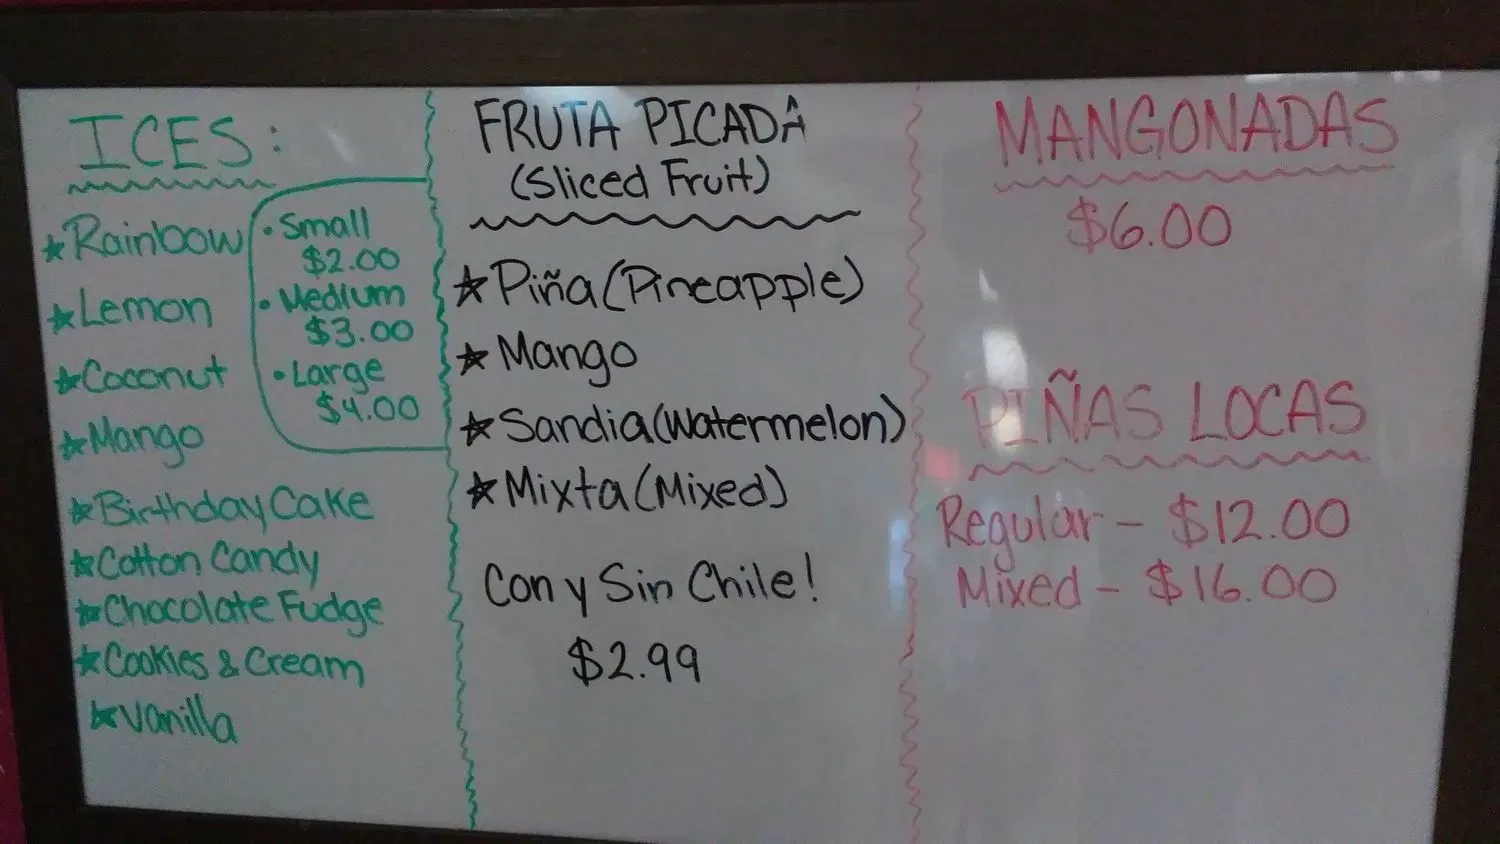 ICES:
★Rainbow
★Lemon
★Coconut
★Mango
★Birthday Cake
★Cotton Candy
★Chocolate Fudge
★Cookies & Cream
★Vanilla
•Small
$2.00
•Medium
$3.00
•Large
$4.00
FRUTA PICADA
(Sliced Fruit)
★Piña (Pineapple)
★Mango
★Sandia (Watermelon)
★Mixta (Mixed)
Con y Sin Chile!
$2.99
MANGONADAS
$6.00
PIÑAS LOCAS
Regular - $12.00
Mixed - $16.00